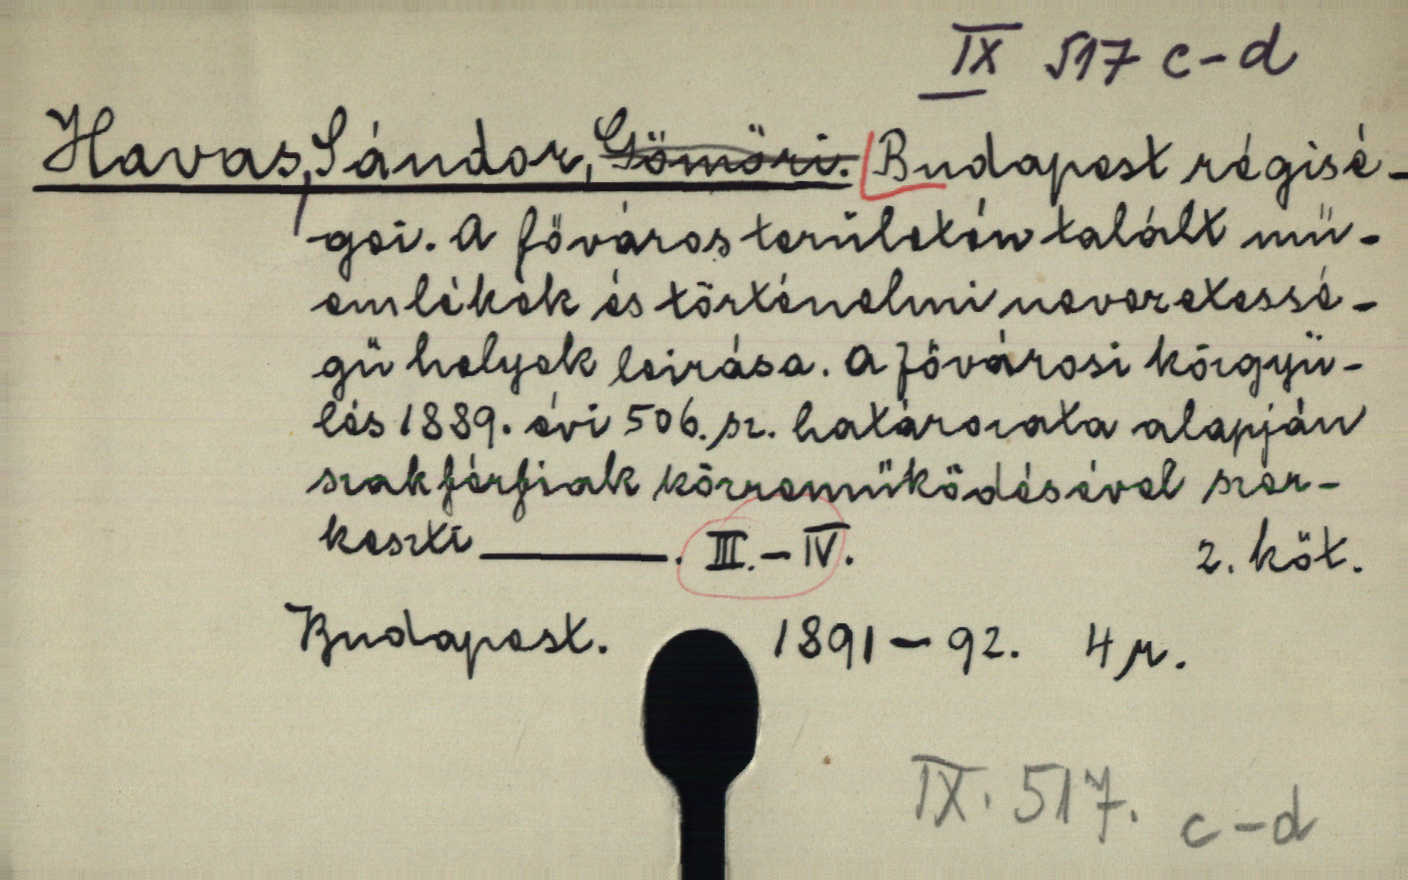 IX 517 c-d
Havas, Sándor, Gömöri. Budapest régisé-
gei. A főváros területén talált mű-
emlékek és történelmi nevezetessé-
gű helyek leirása. A fővárosi közgyü-
lés 1889. évi 506. sz. határozata alapján
szakférfiak közreműködésével szer-
keszti ———. III.-IV. 2. köt.
Budapest. 1891-92. 4 r.
IX. 517. c-d